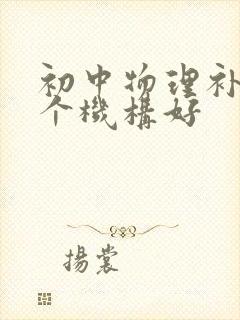 初中物理补
个機構好
揚裳